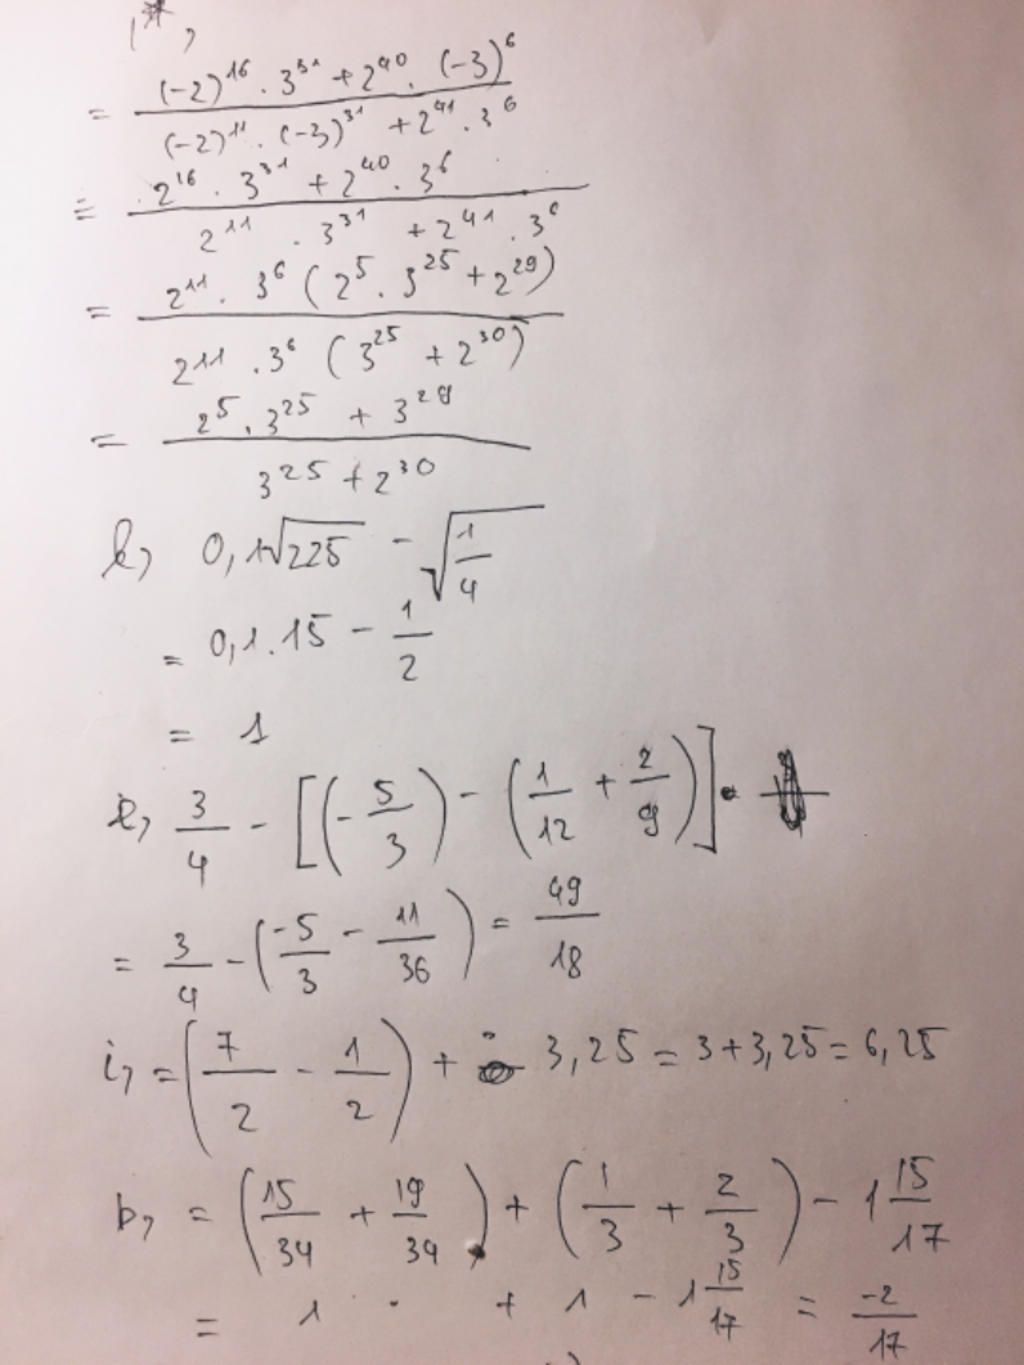 = \frac{(-2)^{16} . 3^{31} + 2^{40} . (-3)^{6}}{(-2)^{11} . (-3)^{31} + 2^{41} . 3^{6}}
= \frac{2^{16} . 3^{31} + 2^{40} . 3^{6}}{2^{11} . 3^{31} + 2^{41} . 3^{6}}
= \frac{2^{11} . 3^{6} (2^{5} . 3^{25} + 2^{29})}{2^{11} . 3^{6} (3^{25} + 2^{30})}
= \frac{2^{5} . 3^{25} + 3^{29}}{3^{25} + 2^{30}}
l, 0,1\sqrt{225} - \sqrt{\frac{1}{4}}
= 0,1 . 15 - \frac{1}{2}
= 1
\frac{3}{4} - [(-\frac{5}{3}) - (\frac{1}{12} + \frac{2}{9})]
= \frac{3}{4} - (\frac{-5}{3} - \frac{11}{36}) = \frac{49}{18}
i, = (\frac{7}{2} - \frac{1}{2}) + 3,25 = 3 + 3,25 = 6,25
b, = (\frac{15}{34} + \frac{19}{34}) + (\frac{1}{3} + \frac{2}{3}) - 1\frac{15}{17}
= 1 + 1 - 1\frac{15}{17} = \frac{-2}{17}